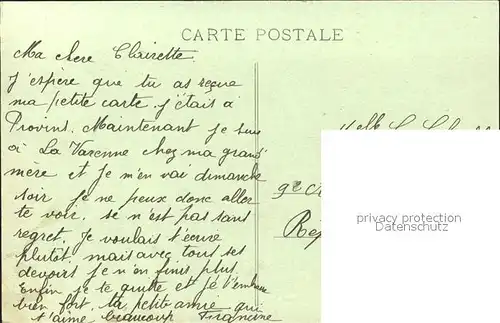 CARTE POSTALE
Ma chere Clairette.
J'espère que tu as reçue
ma petite carte. j'étais à
Provins. Maintenant je suis
à La Varenne chez ma grand'
mère et je m'en vai dimanche
soir je ne peux donc aller
te voir. se n'est pas sans
regret. Je voulais t'écrire
plutôt mais avec tous ses
devoirs je n'en finis plus.
Enfin je te quitte et je t'embrasse
bien fort. ta petite amie qui
t'aime beaucoup Francine
Melle
privacy protection
Copyright